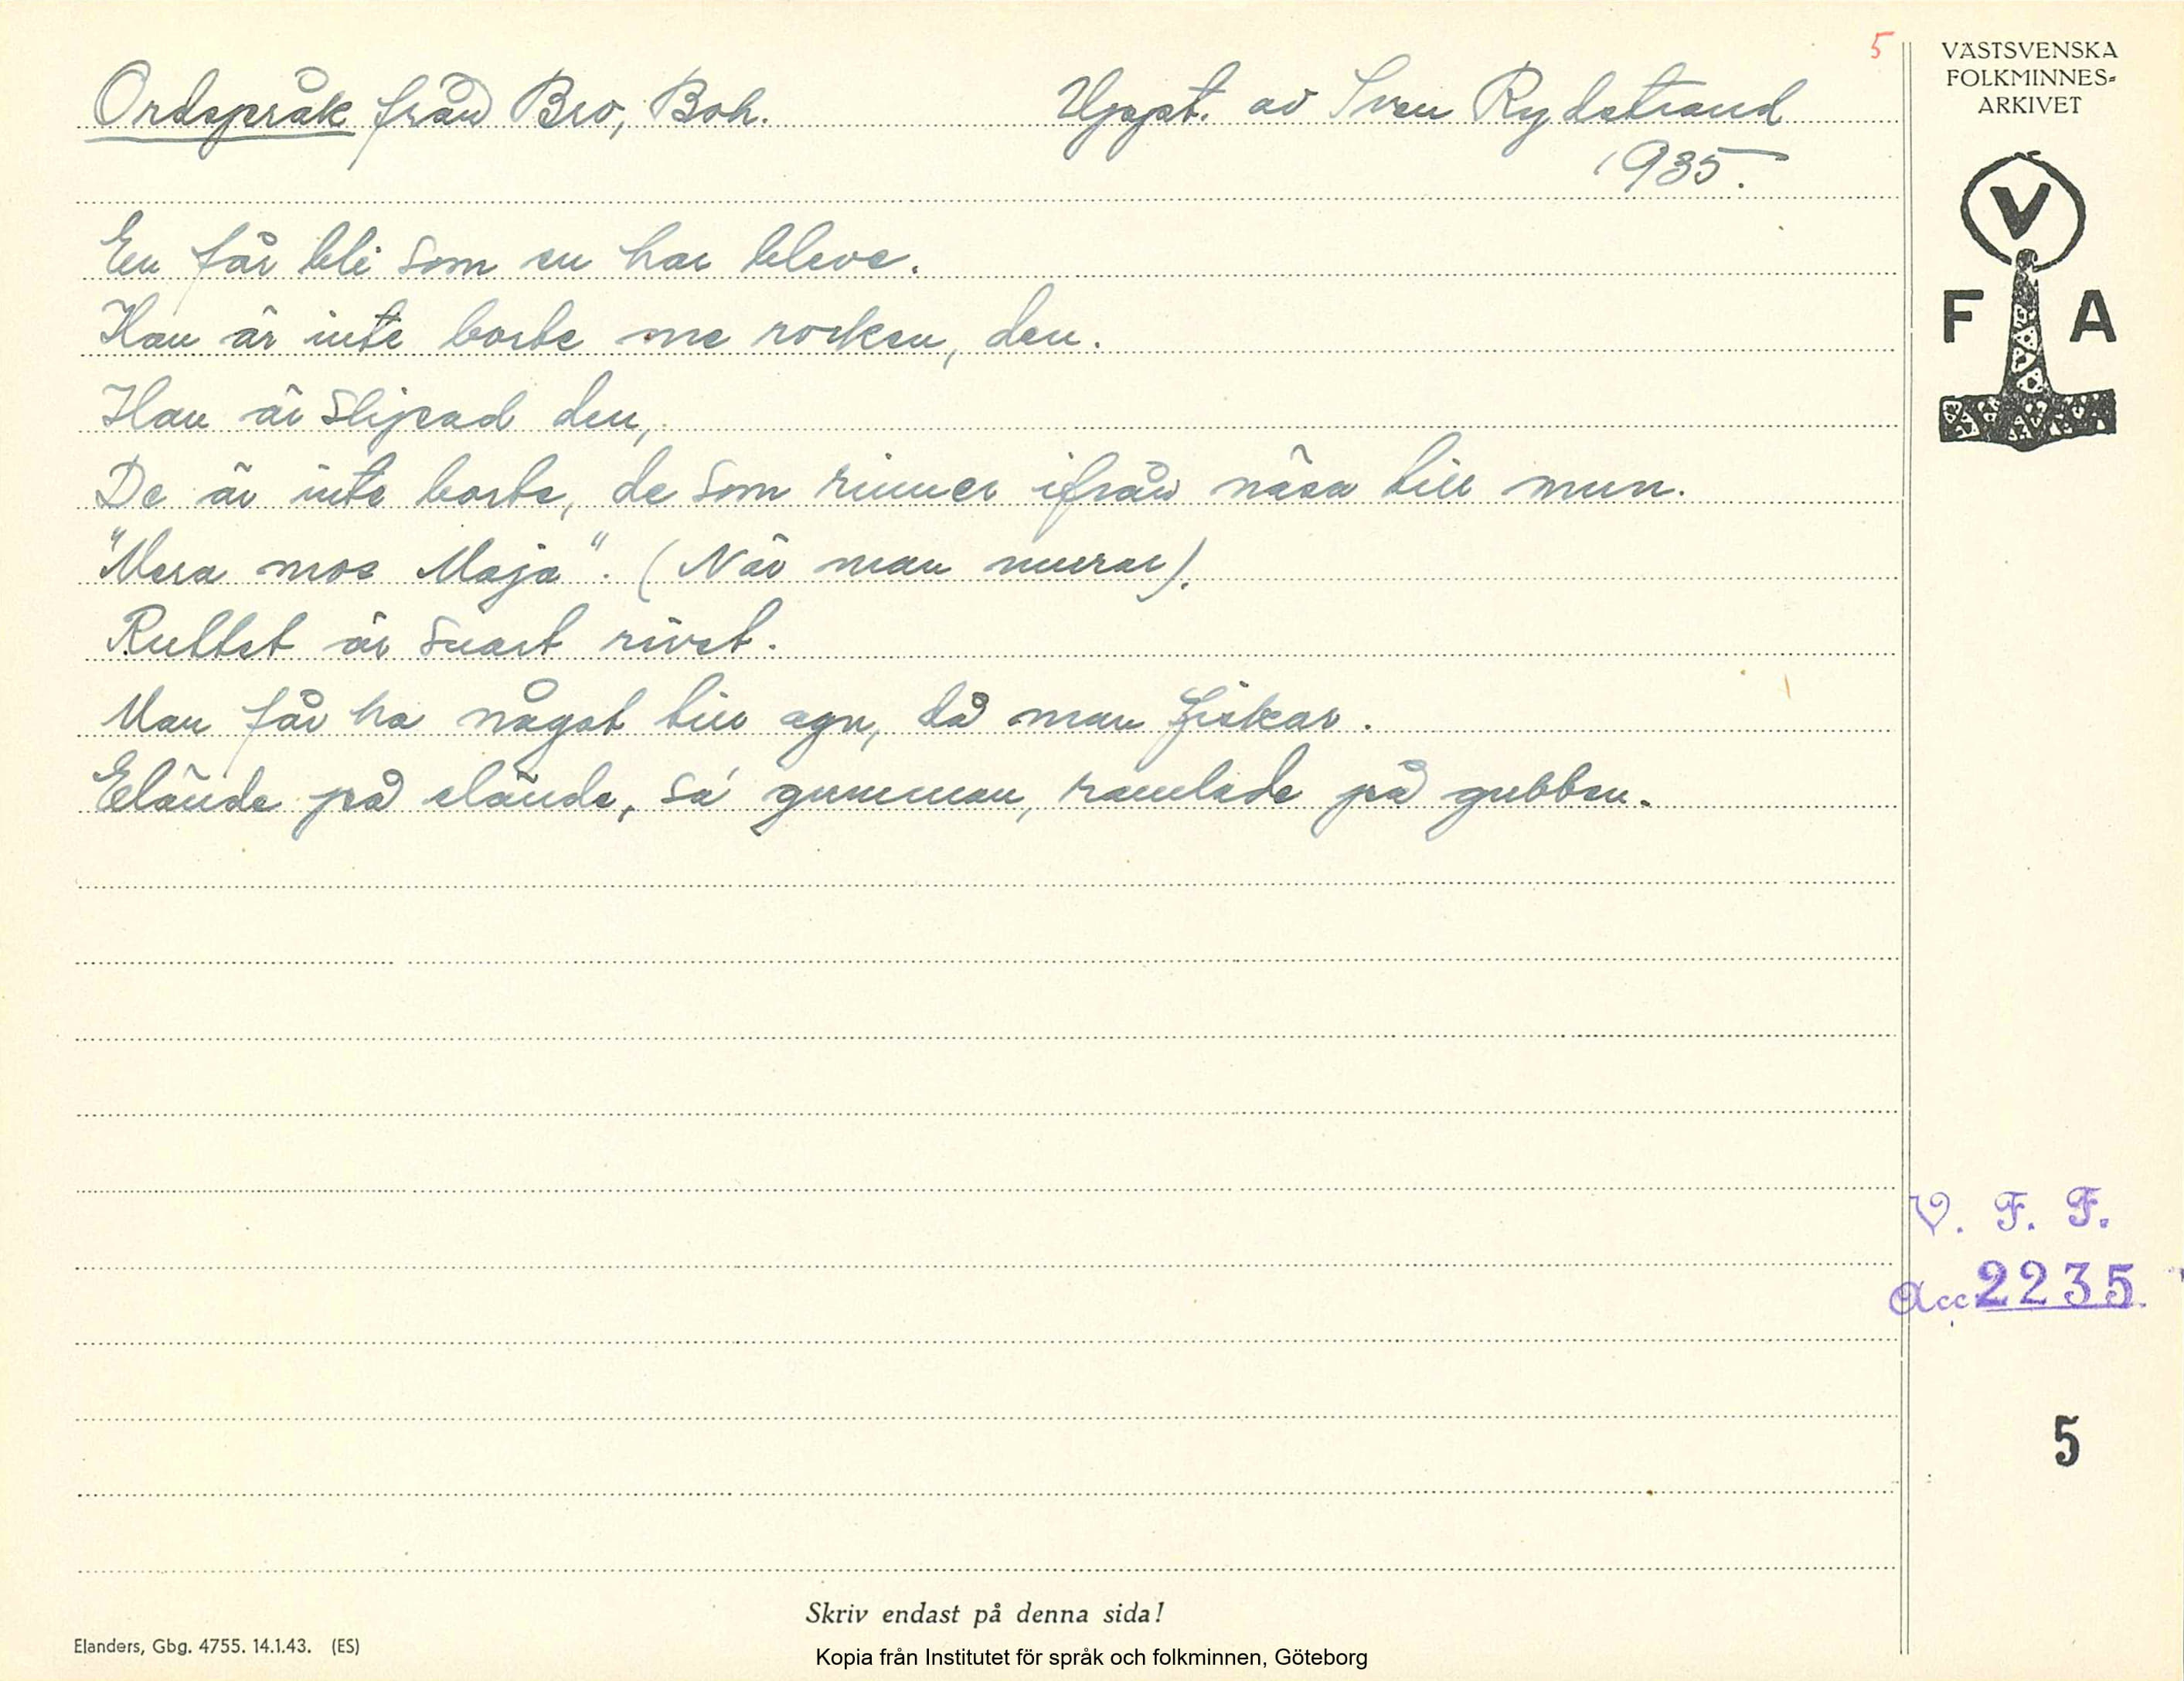 5
VÄSTSVENSKA
FOLKMINNES-
ARKIVET
V
F A
Ordspråk från Bro, Boh. Uppt. av Sven Rydstrand
1935.
En får bli som en har bleve.
Han är inte borte me rocken, den.
Han är slipad den,
De är inte borte, de som rinner ifrån näsa till mun.
"Mera mos Maja". (När man murar).
Ruttet är snart rivet.
Man får ha något till agn, då man fiskar.
Elände på elände, sa' gumman, ramlade på gubben.
V. F. F.
Acc 2235
5
Skriv endast på denna sida!
Elanders, Gbg. 4755. 14.1.43. (ES)
Kopia från Institutet för språk och folkminnen, Göteborg